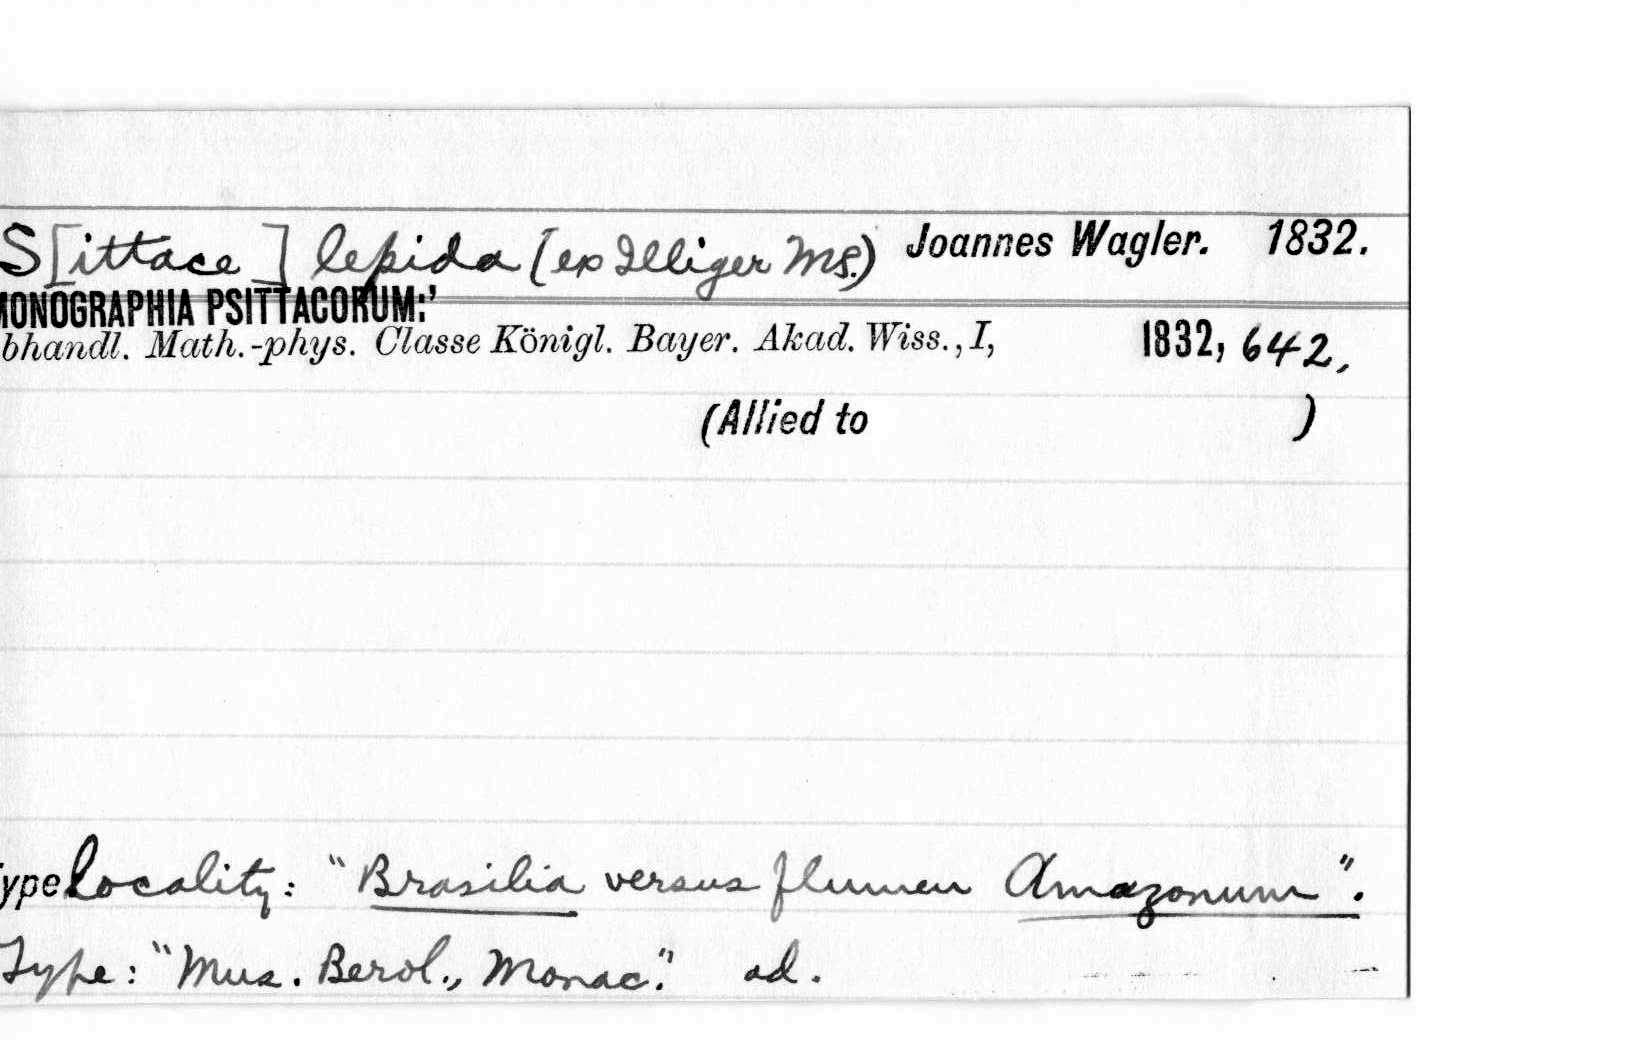 S[ittace] lepida (ex Illiger Ms.) Joannes Wagler. 1832.
MONOGRAPHIA PSITTACORUM:'
bhandl. Math.-phys. Classe Königl. Bayer. Akad. Wiss., I, 1832, 642,
(Allied to )
ype Locality: "Brasilia versus flumen Amazonum".
Type: "Mus. Berol., Monac." ad.